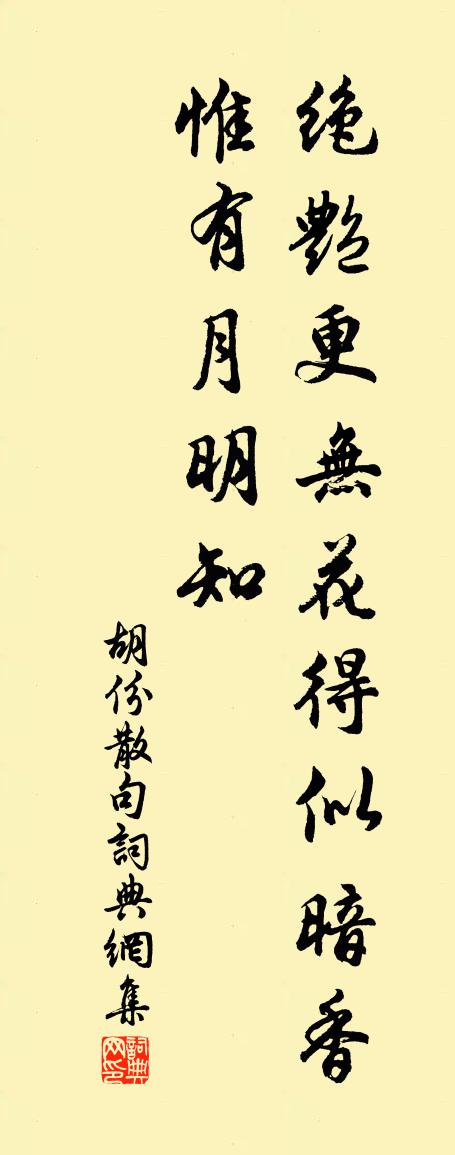 绝艷更無花得似暗香
惟有月明知
胡份散句詞典網集
詞典网印